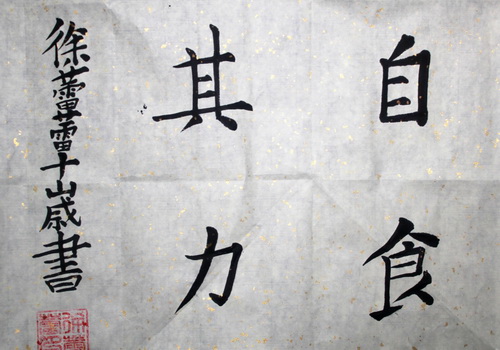 自食
其力
徐蕾蕾十歲書